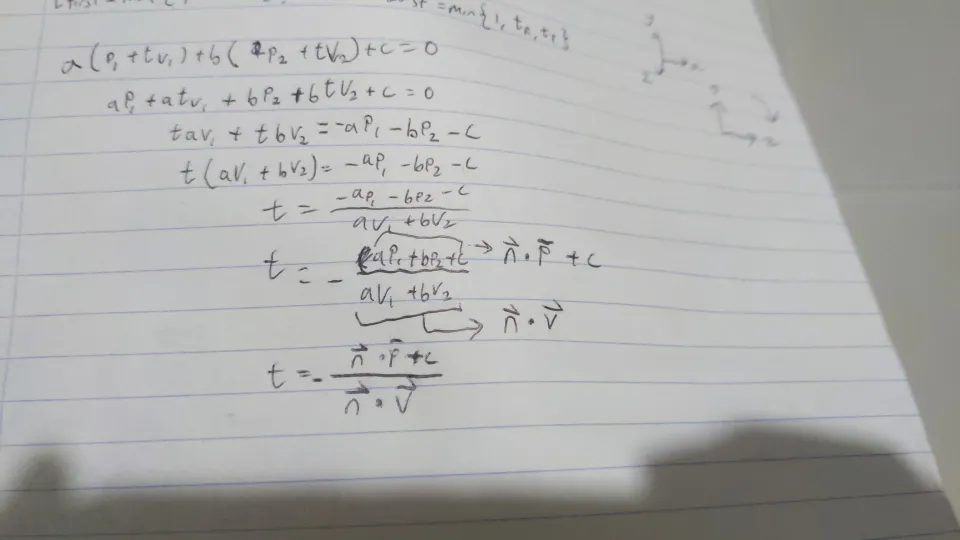 = min{1, t_a, t_1}
a(P₁ + tv₁) + b(P₂ + tV₂) + C = 0
aP₁ + atv₁ + bP₂ + btV₂ + C = 0
tav₁ + tbv₂ = -aP₁ - bP₂ - C
t(av₁ + bV₂) = -aP₁ - bP₂ - C
t = (-aP₁ - bP2 - C) / (aV₁ + bV2)
t = - (aP₁ + bP₂ + C) / (aV₁ + bV2) → n⃗ · P̄ + C
→ n⃗ · V⃗
t = - (n⃗ · P̄ + C) / (n⃗ · V⃗)